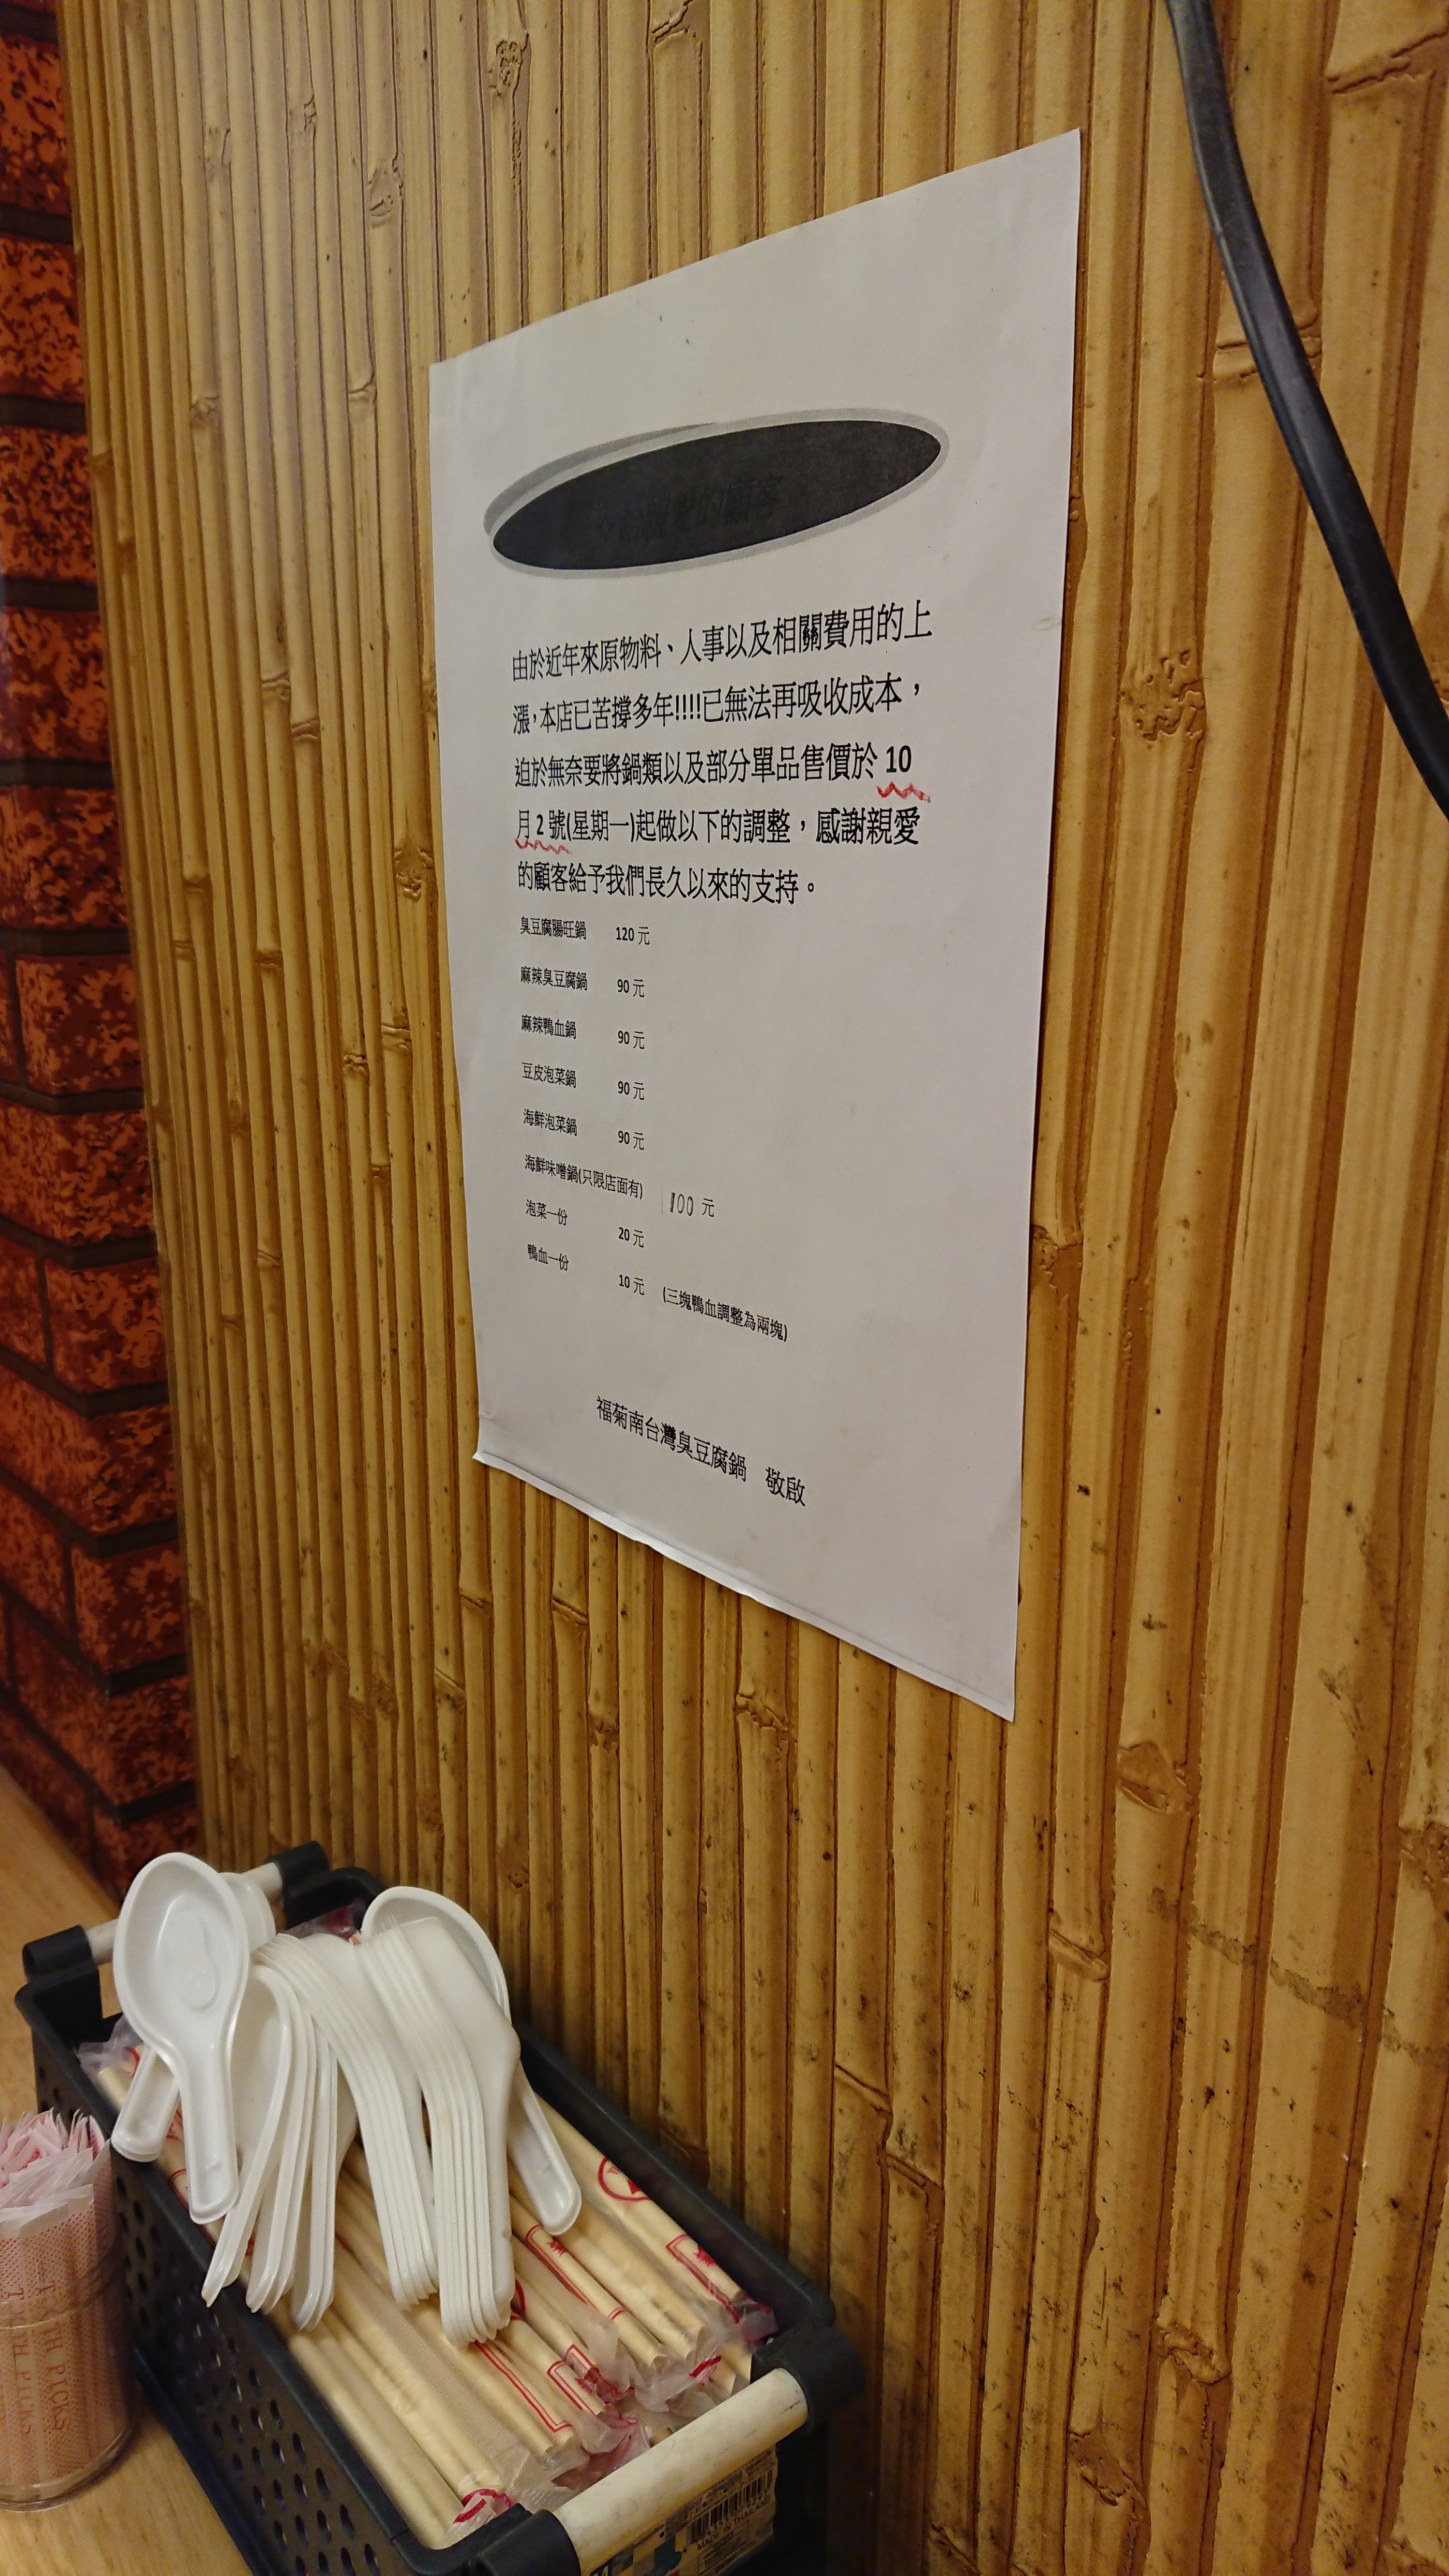 親愛的顧客
由於近年來原物料、人事以及相關費用的上
漲,本店已苦撐多年!!!!已無法再吸收成本，
迫於無奈要將鍋類以及部分單品售價於 10
月 2 號(星期一)起做以下的調整，感謝親愛
的顧客給予我們長久以來的支持。
臭豆腐腸旺鍋 120 元
麻辣臭豆腐鍋 90 元
麻辣鴨血鍋 90 元
豆皮泡菜鍋 90 元
海鮮泡菜鍋 90 元
海鮮味噌鍋(只限店面有) 100 元
泡菜一份 20 元
鴨血一份 10 元 (三塊鴨血調整為兩塊)
福菊南台灣臭豆腐鍋 敬啟
TOOTH PICKS